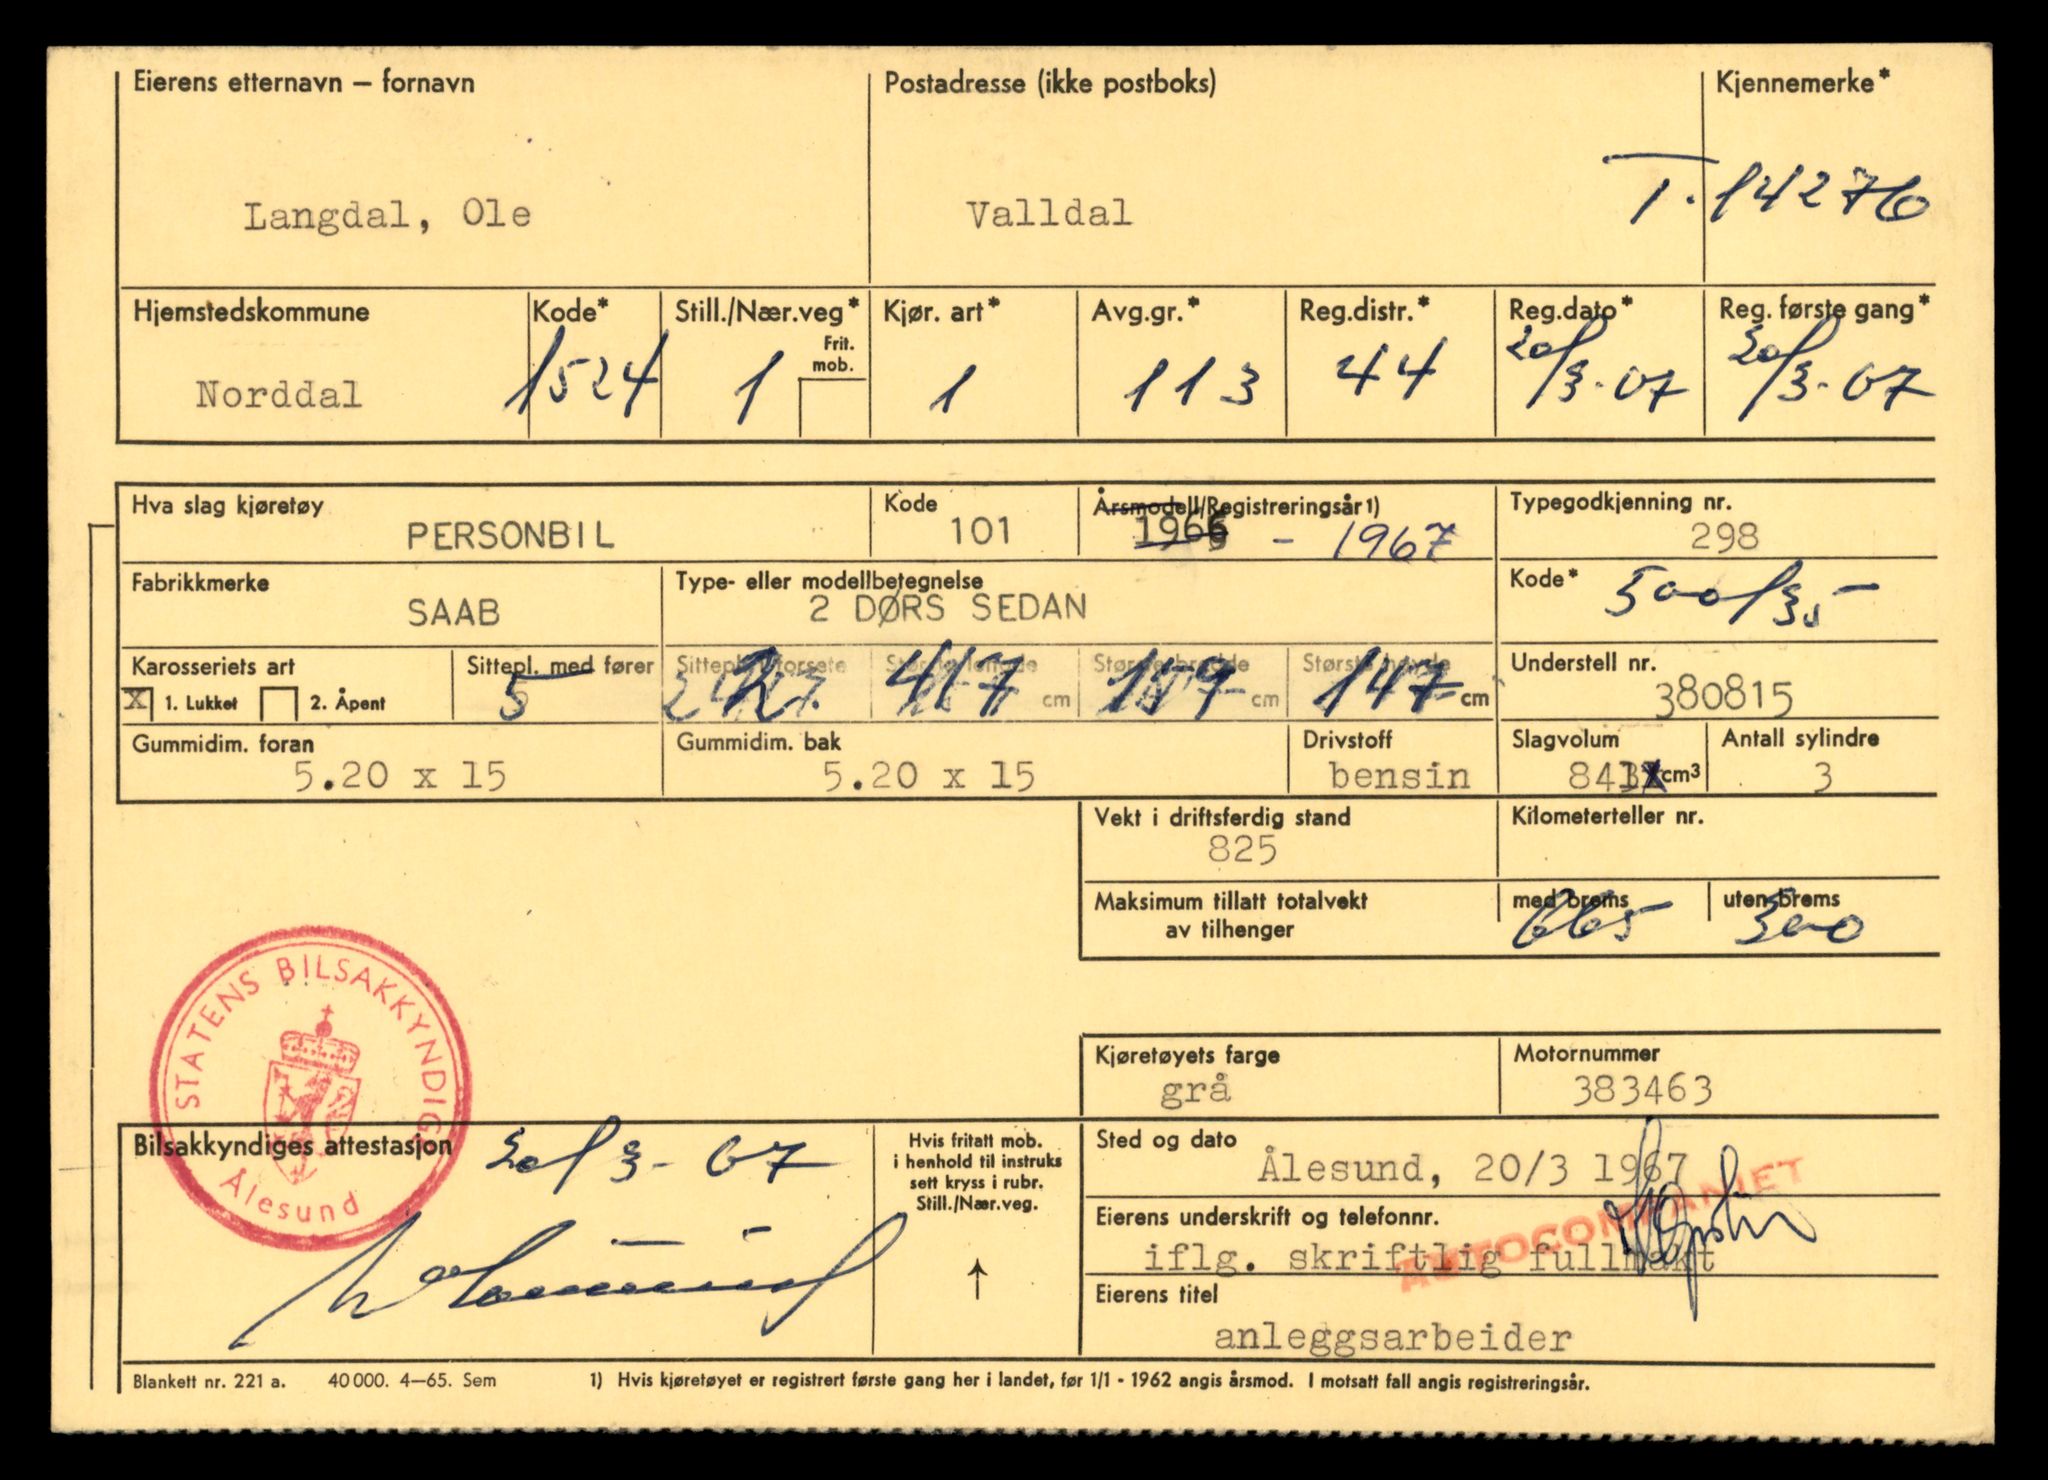 Eierens etternavn — fornavn Postadresse (ikke postboks) Kjennemerke*
Langdal, Ole Valldal T-14276
Hjemstedskommune Kode* Still./Nær.veg* Kjør. art* Avg.gr.* Reg.distr.* Reg.dato* Reg. første gang*
Frit. mob.
Norddal 1524 1 1 113 44 20/3-67 20/3-67
Hva slag kjøretøy Kode Årsmodell/Registreringsår 1) Typegodkjenning nr.
PERSONBIL 101 1966 - 1967 298
Fabrikkmerke Type- eller modellbetegnelse Kode*
SAAB 2 DØRS SEDAN 500/35
Karosseriets art Sittepl. med fører Sittepl. i forsete Største lengde Største bredde Største høyde Understell nr.
X 1. Lukket 2. Åpent 5 2 417 cm 159 cm 147 cm 380815
Gummidim. foran Gummidim. bak Drivstoff Slagvolum Antall sylindre
5.20 x 15 5.20 x 15 bensin 841 cm³ 3
Vekt i driftsferdig stand Kilometerteller nr.
825
Maksimum tillatt totalvekt av tilhenger med brems uten brems
665 300
STATENS BILSAKKYNDIGE
Ålesund
Kjøretøyets farge Motornummer
grå 383463
Bilsakkyndiges attestasjon 20/3-67
Hvis fritatt mob.
i henhold til instruks
sett kryss i rubr.
Still./Nær.veg.
Sted og dato
Ålesund, 20/3 1967
AUTOCOMPANIET
Eierens underskrift og telefonnr.
iflg. skriftlig fullmakt
Eierens titel
anleggsarbeider
Blankett nr. 221 a. 40 000. 4—65. Sem 1) Hvis kjøretøyet er registrert første gang her i landet, før 1/1 - 1962 angis årsmod. I motsatt fall angis registreringsår.